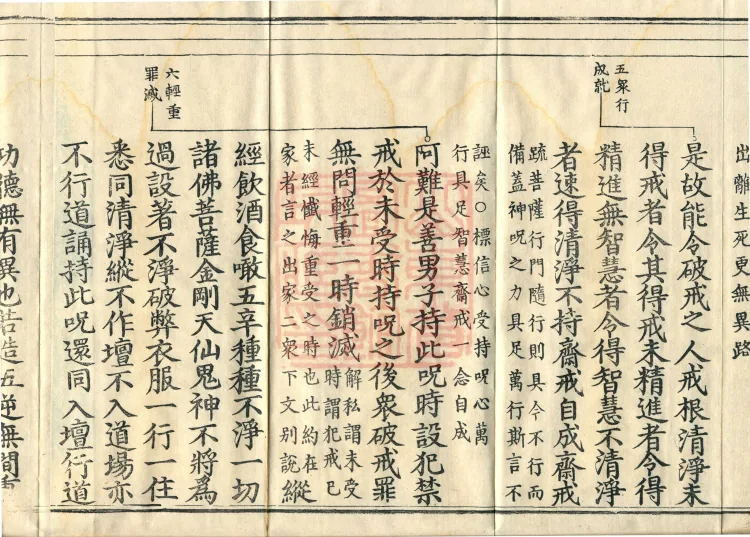 出離生死更無異路
五眾行
成就
是故能令破戒之人戒根清淨未
得戒者令其得戒未精進者令得
精進無智慧者令得智慧不清淨
者速得清淨不持齋戒自成齋戒
疏菩薩行門隨行則具今不行而
備蓋神呪之力具足萬行斯言不
誣矣○標信心受持呪心萬
行具足智慧齋戒一念自成
阿難是善男子持此呪時設犯禁
戒於未受時持呪之後眾破戒罪
無問輕重一時銷滅解私謂未受時謂犯戒已
未經懺悔重受之時也此約在
家者言之出家二眾下文別說縱
六輕重
罪滅
經飲酒食噉五辛種種不淨一切
諸佛菩薩金剛天仙鬼神不將為
過設著不淨破弊衣服一行一住
悉同清淨縱不作壇不入道場亦
不行道誦持此呪還同入壇行道
功德無有異也若造五逆無間重